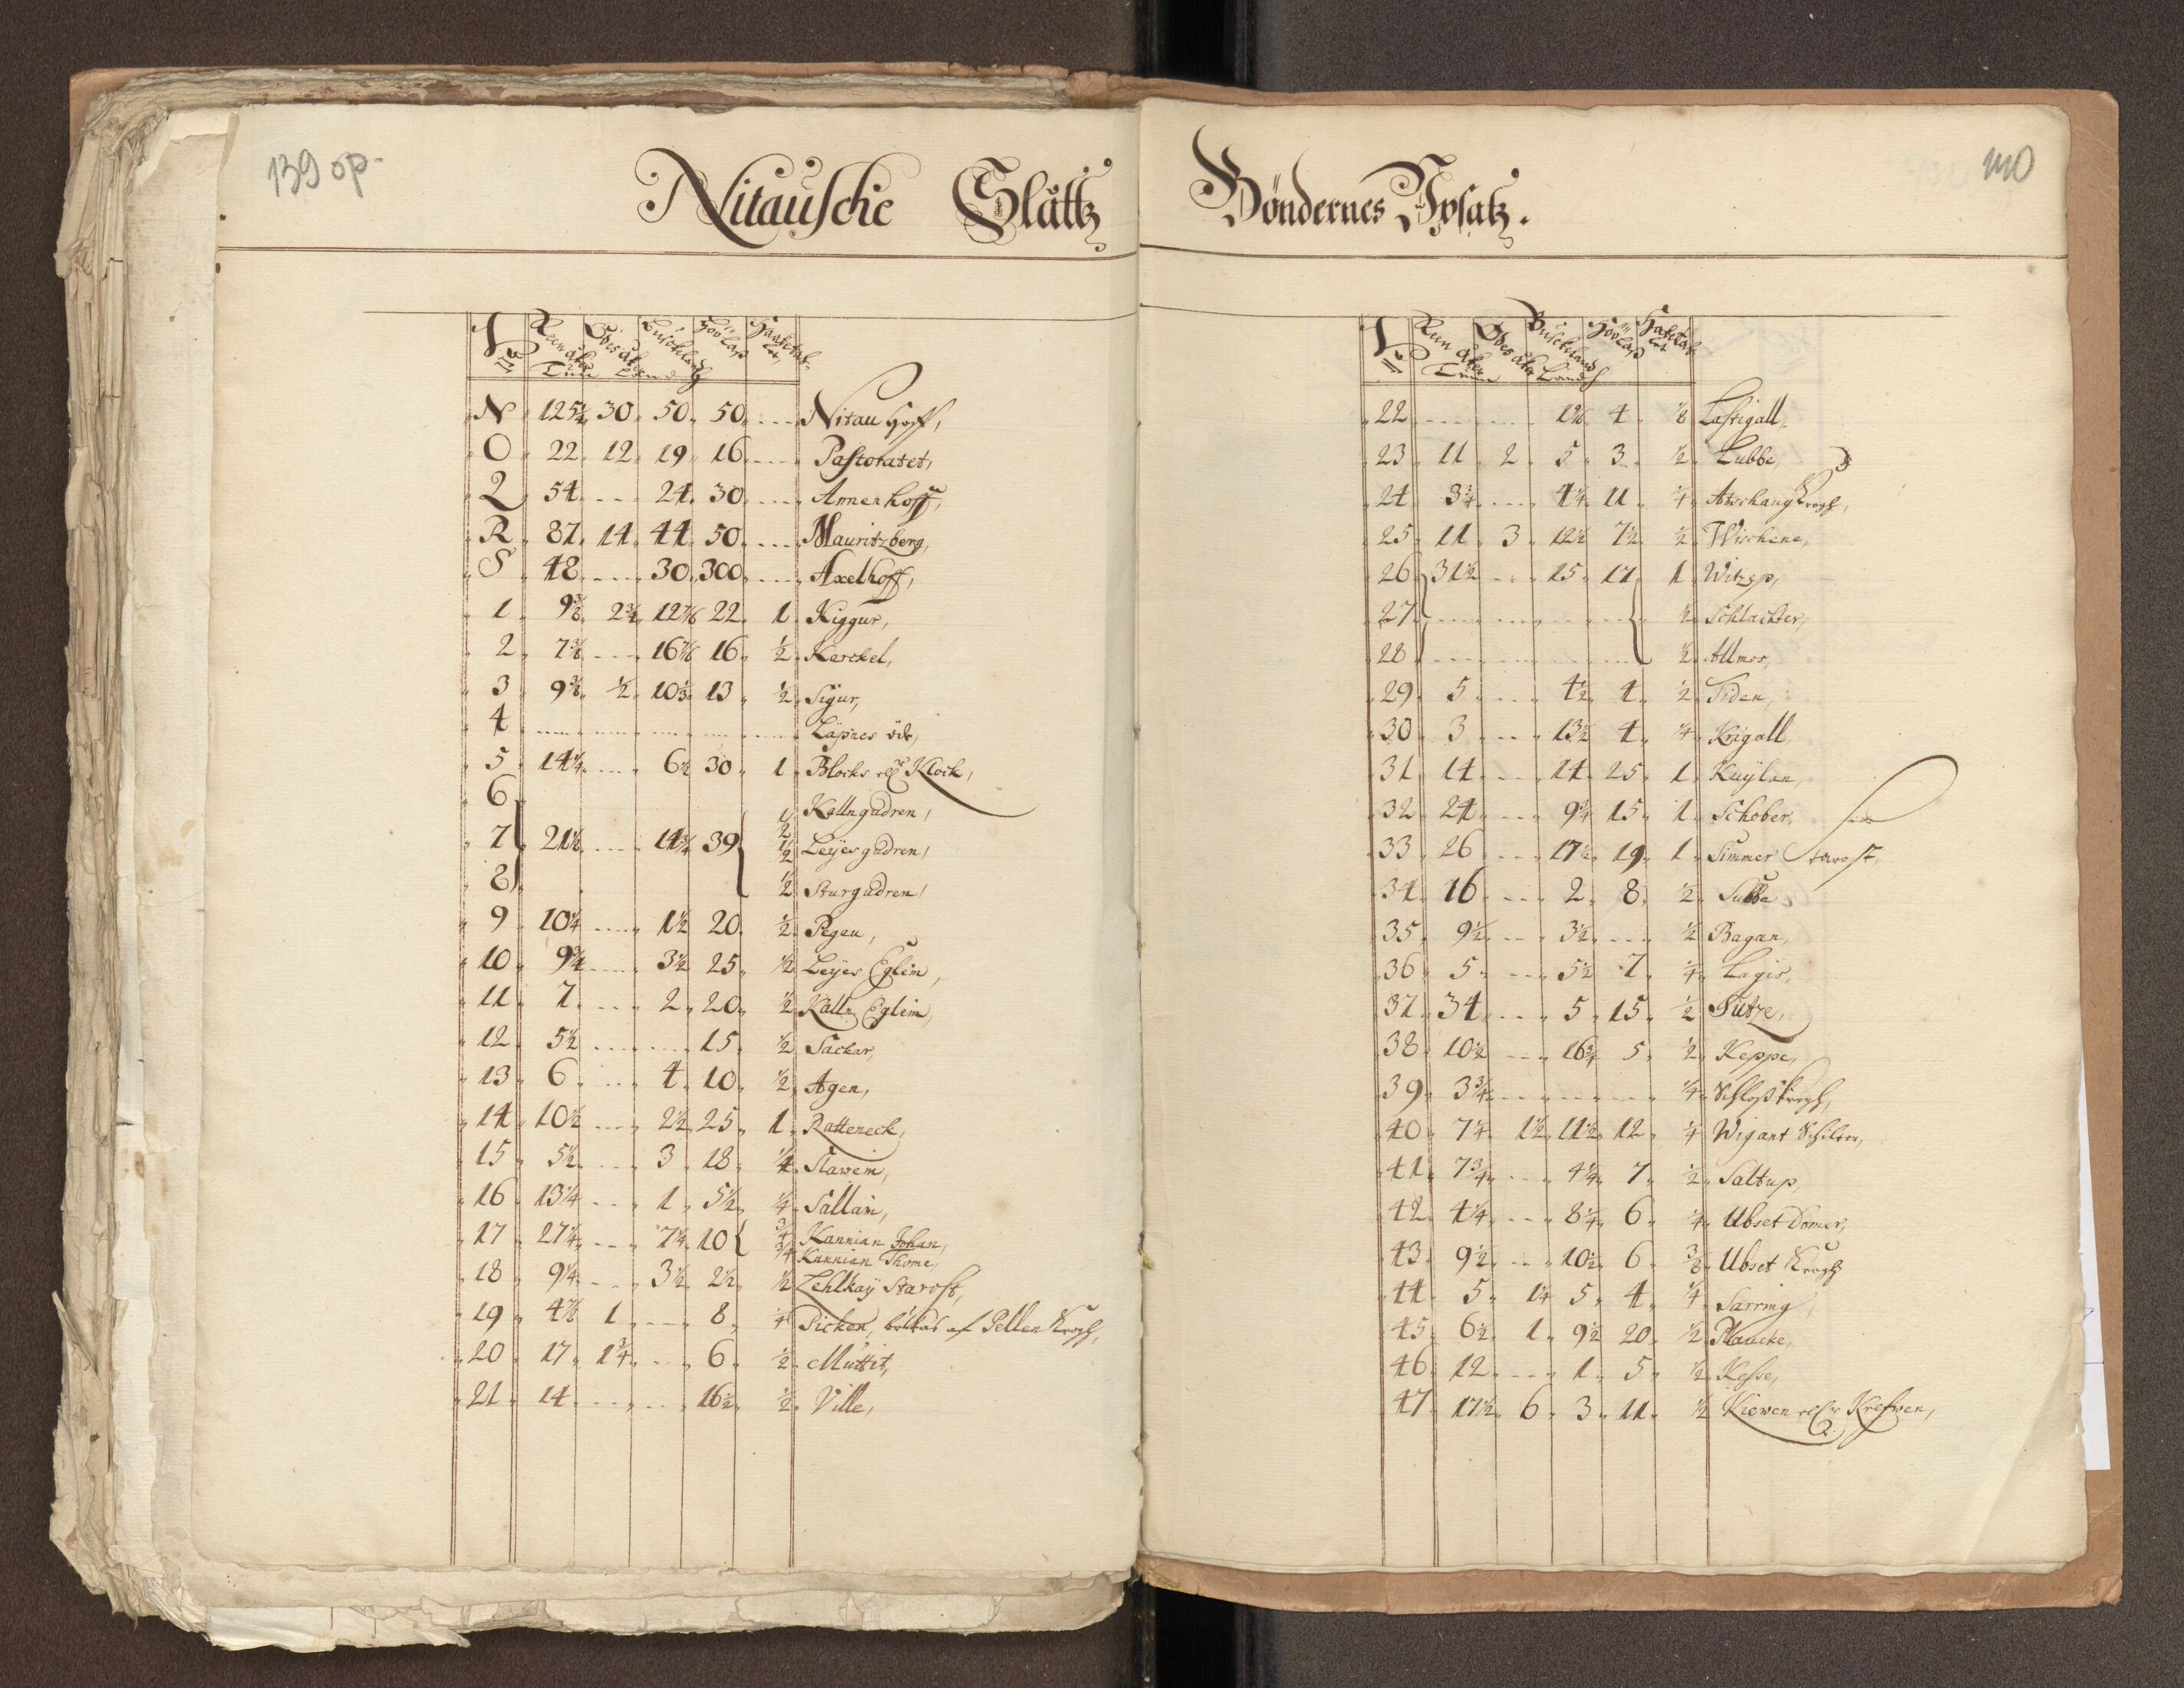 139 op.
Nitausche Slåttz
N 125½ 30 50 50 Nitau Hoff,
O 22 12 19 16 Pastoratet,
Q 54 24 30 Annenhoff,
R 87 14 44 50 Mauritzberg,
S 48 30 300 Axelhoff,
1 9⅜ 2¾ 12 22 1 Kiggur,
2 7⅜ 16 16 ½ Karckel,
3 9⅜ ½ 10⅓ 13 ½ Sigur,
4 Läpnes öde,
5 14¼ 6½ 30 1 Blocks Klock,
6 ½ Kallngudren,
7 21⅛ 14¾ 39 ½ Leyesgudren,
8 ½ Sturgudren,
9 10¼ 1½ 20 ½ Pegeu,
10 9¾ 3½ 25 ½ Leyes Eglim,
11 7 2 20 ½ Kalln Eglim,
12 5½ 15 ½ Sackar,
13 6 4 10 ½ Agen,
14 10½ 2½ 25 1 Ratteneck,
15 5½ 3 18 ¼ Slawein,
16 13¼ 1 5½ ¼ Sallain,
17 27¼ 7¼ 10 ¾ Kannian Johan,
¾ Kannian Thome,
18 9¼ 3½ 2½ ½ Zehlkay Starost,
19 4⅞ 1 8 ¼ Sicken, af Pellen Krogh,
20 17 1¾ 6 ½ Muttit,
21 14 16½ ½ Ville,
140
Böndernes Vpsatz.
22 4 ⅛ Lastigall,
23 11 2 5 3 ½ Lubbe,
24 3¾ 4¼ 11 ¼ Atschaug Krogh,
25 11 3 12½ 7½ ½ Wirschene,
26 31½ 15 17 1 Witzep,
27 ½ Schlachter,
28 ½ Allmer,
29 5 4½ 4 ½ Tiden,
30 3 13½ 4 ¼ Krigall
31 14 14 25 1 Kuylan,
32 24 9¾ 15 1 Schober,
33 26 17½ 19 1 Simmer Starost,
34 16 2 8 ½ Subbe
35 9½ 3½ ½ Bagan,
36 5 5½ 7 ¼ Lagis,
37 34 5 15 ½ Putze,
38 10½ 16¾ 5 ½ Keppe,
39 3¾ ¼ Schloßkrogh,
40 7¼ 1½ 11½ 12 ¼ Wigant
41 7¾ 4¼ 7 ½ Saltup,
42 4¼ 8¼ 6 ¼ Ubset Domer,
43 9½ 10½ 6 ⅜ Ubset Krogh
44 5 1¼ 5 4 ¼ Sarring,
45 6½ 1 9½ 20 ½ Plaucke,
46 12 1 5 ½ Kesse,
47 17½ 6 3 11 ½ Kiewen Krefwen,